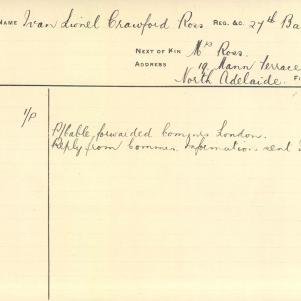 NAME Ivan Lionel Crawford Ross REG. &C. 27th Ba
NEXT OF KIN Mrs Ross.
ADDRESS 19 Mann Terrace
North Adelaide. F
1/P
P/Cable forwarded Comqrs London.
Reply from Commrs. information sent